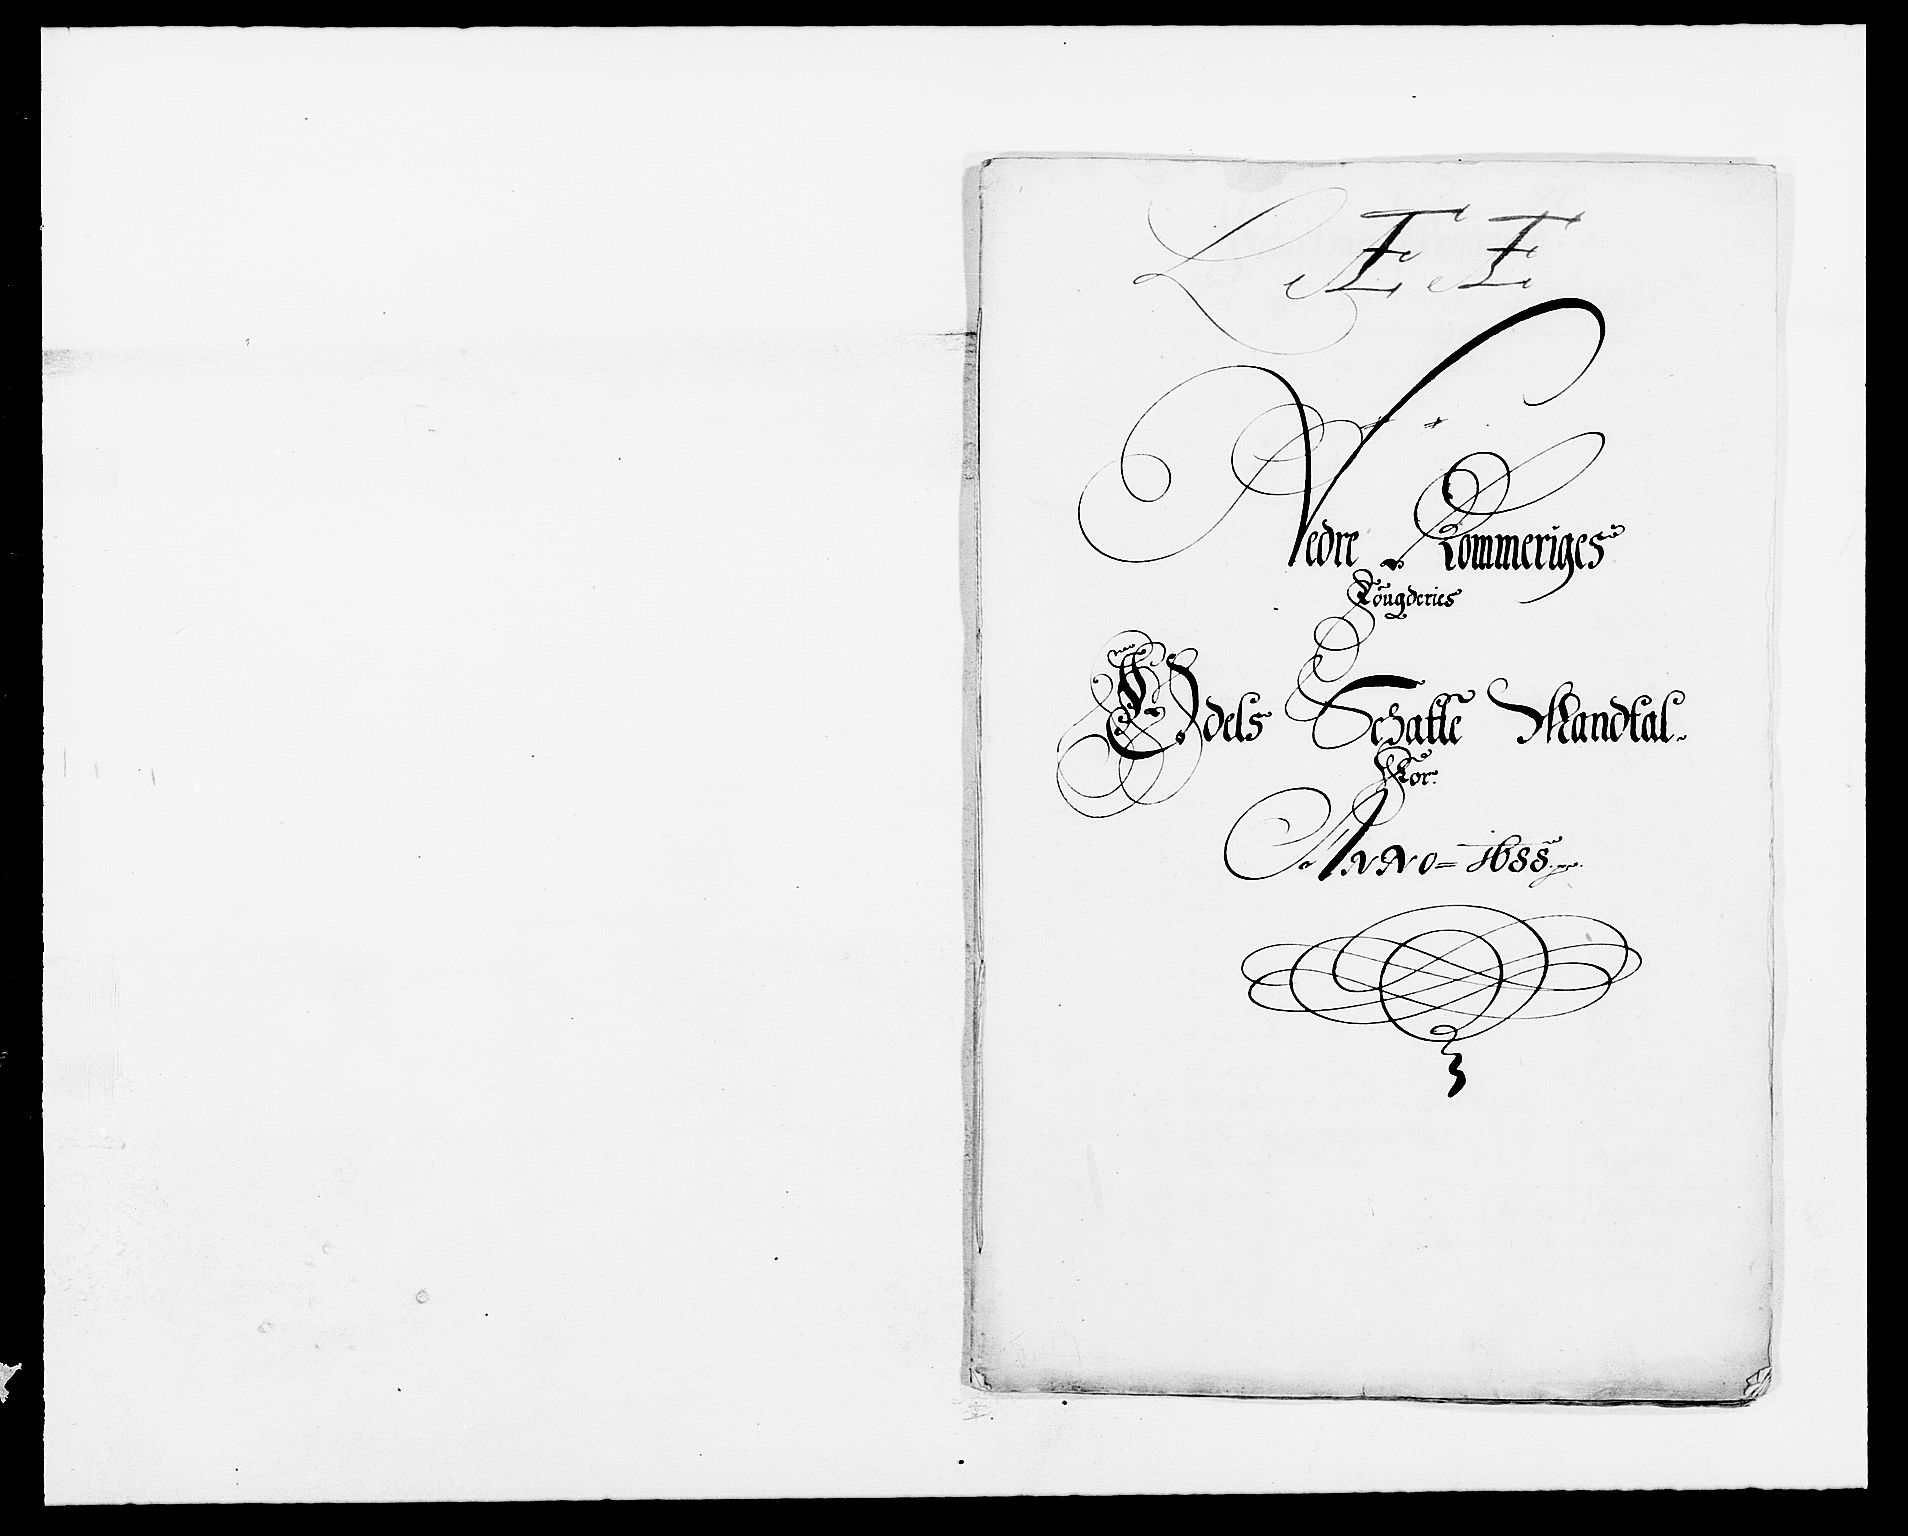 L E E
Nedre Rommeriges
Fougderies
Odels Schatte Mandtal.
For
Anno = 1688